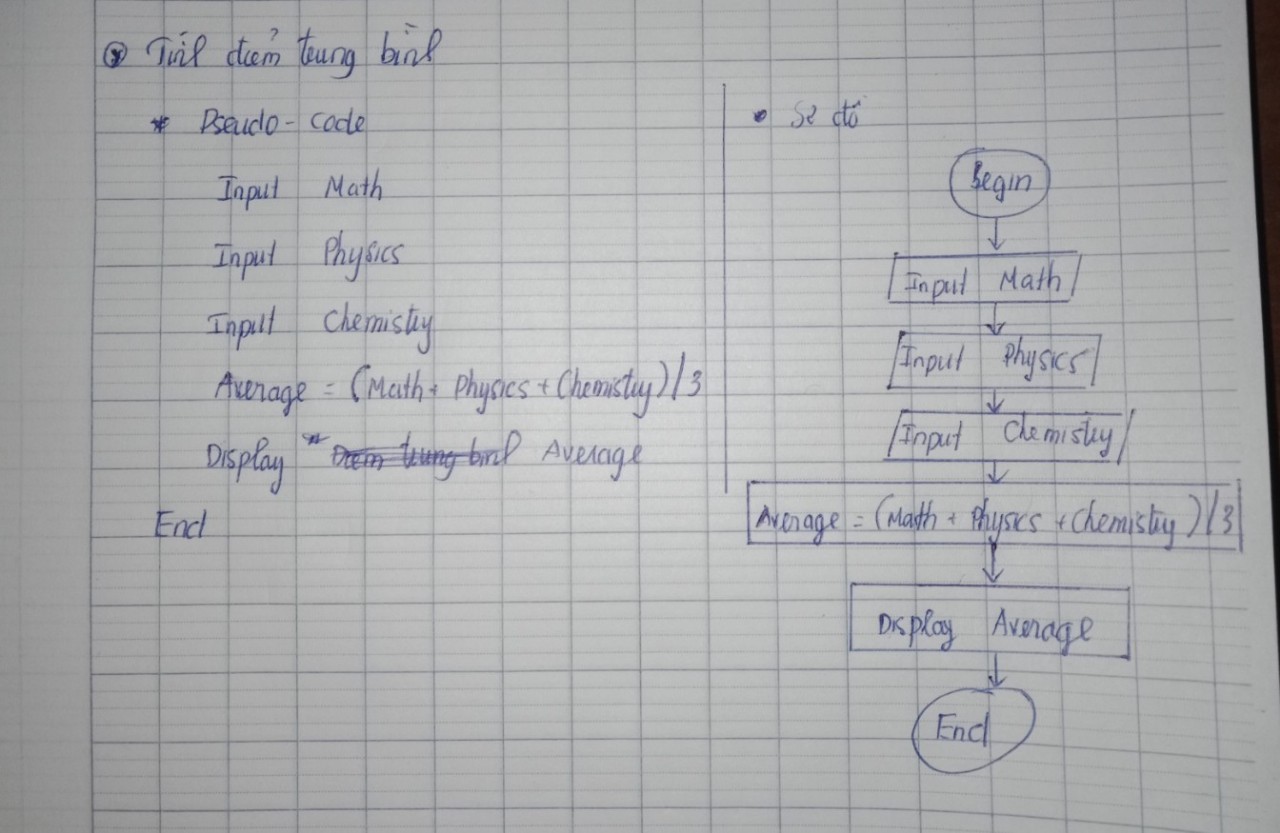 Tính điểm trung bình
* Pseudo-code
Input Math
Input Physics
Input Chemistry
Average = (Math + Physics + Chemistry)/3
Display " Điểm trung bình Average
End
• Sơ đồ
Begin
Input Math
Input Physics
Input Chemistry
Average = (Math + Physics + Chemistry)/3
Display Average
End